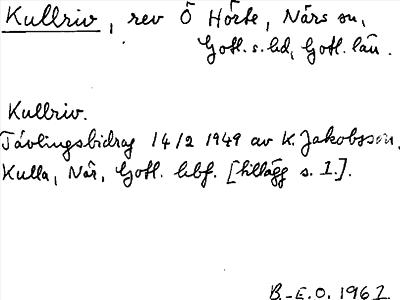 Kullriv, rev Ö Hörte, Närs sn,
Gotl. s. hd, Gotl. län.
Kullriv.
Tävlingsbidrag 14/2 1949 av K. Jakobsson,
Kulla, När, Gotl. hbf. [tillägg s. 1.].
B.-E.O. 1961